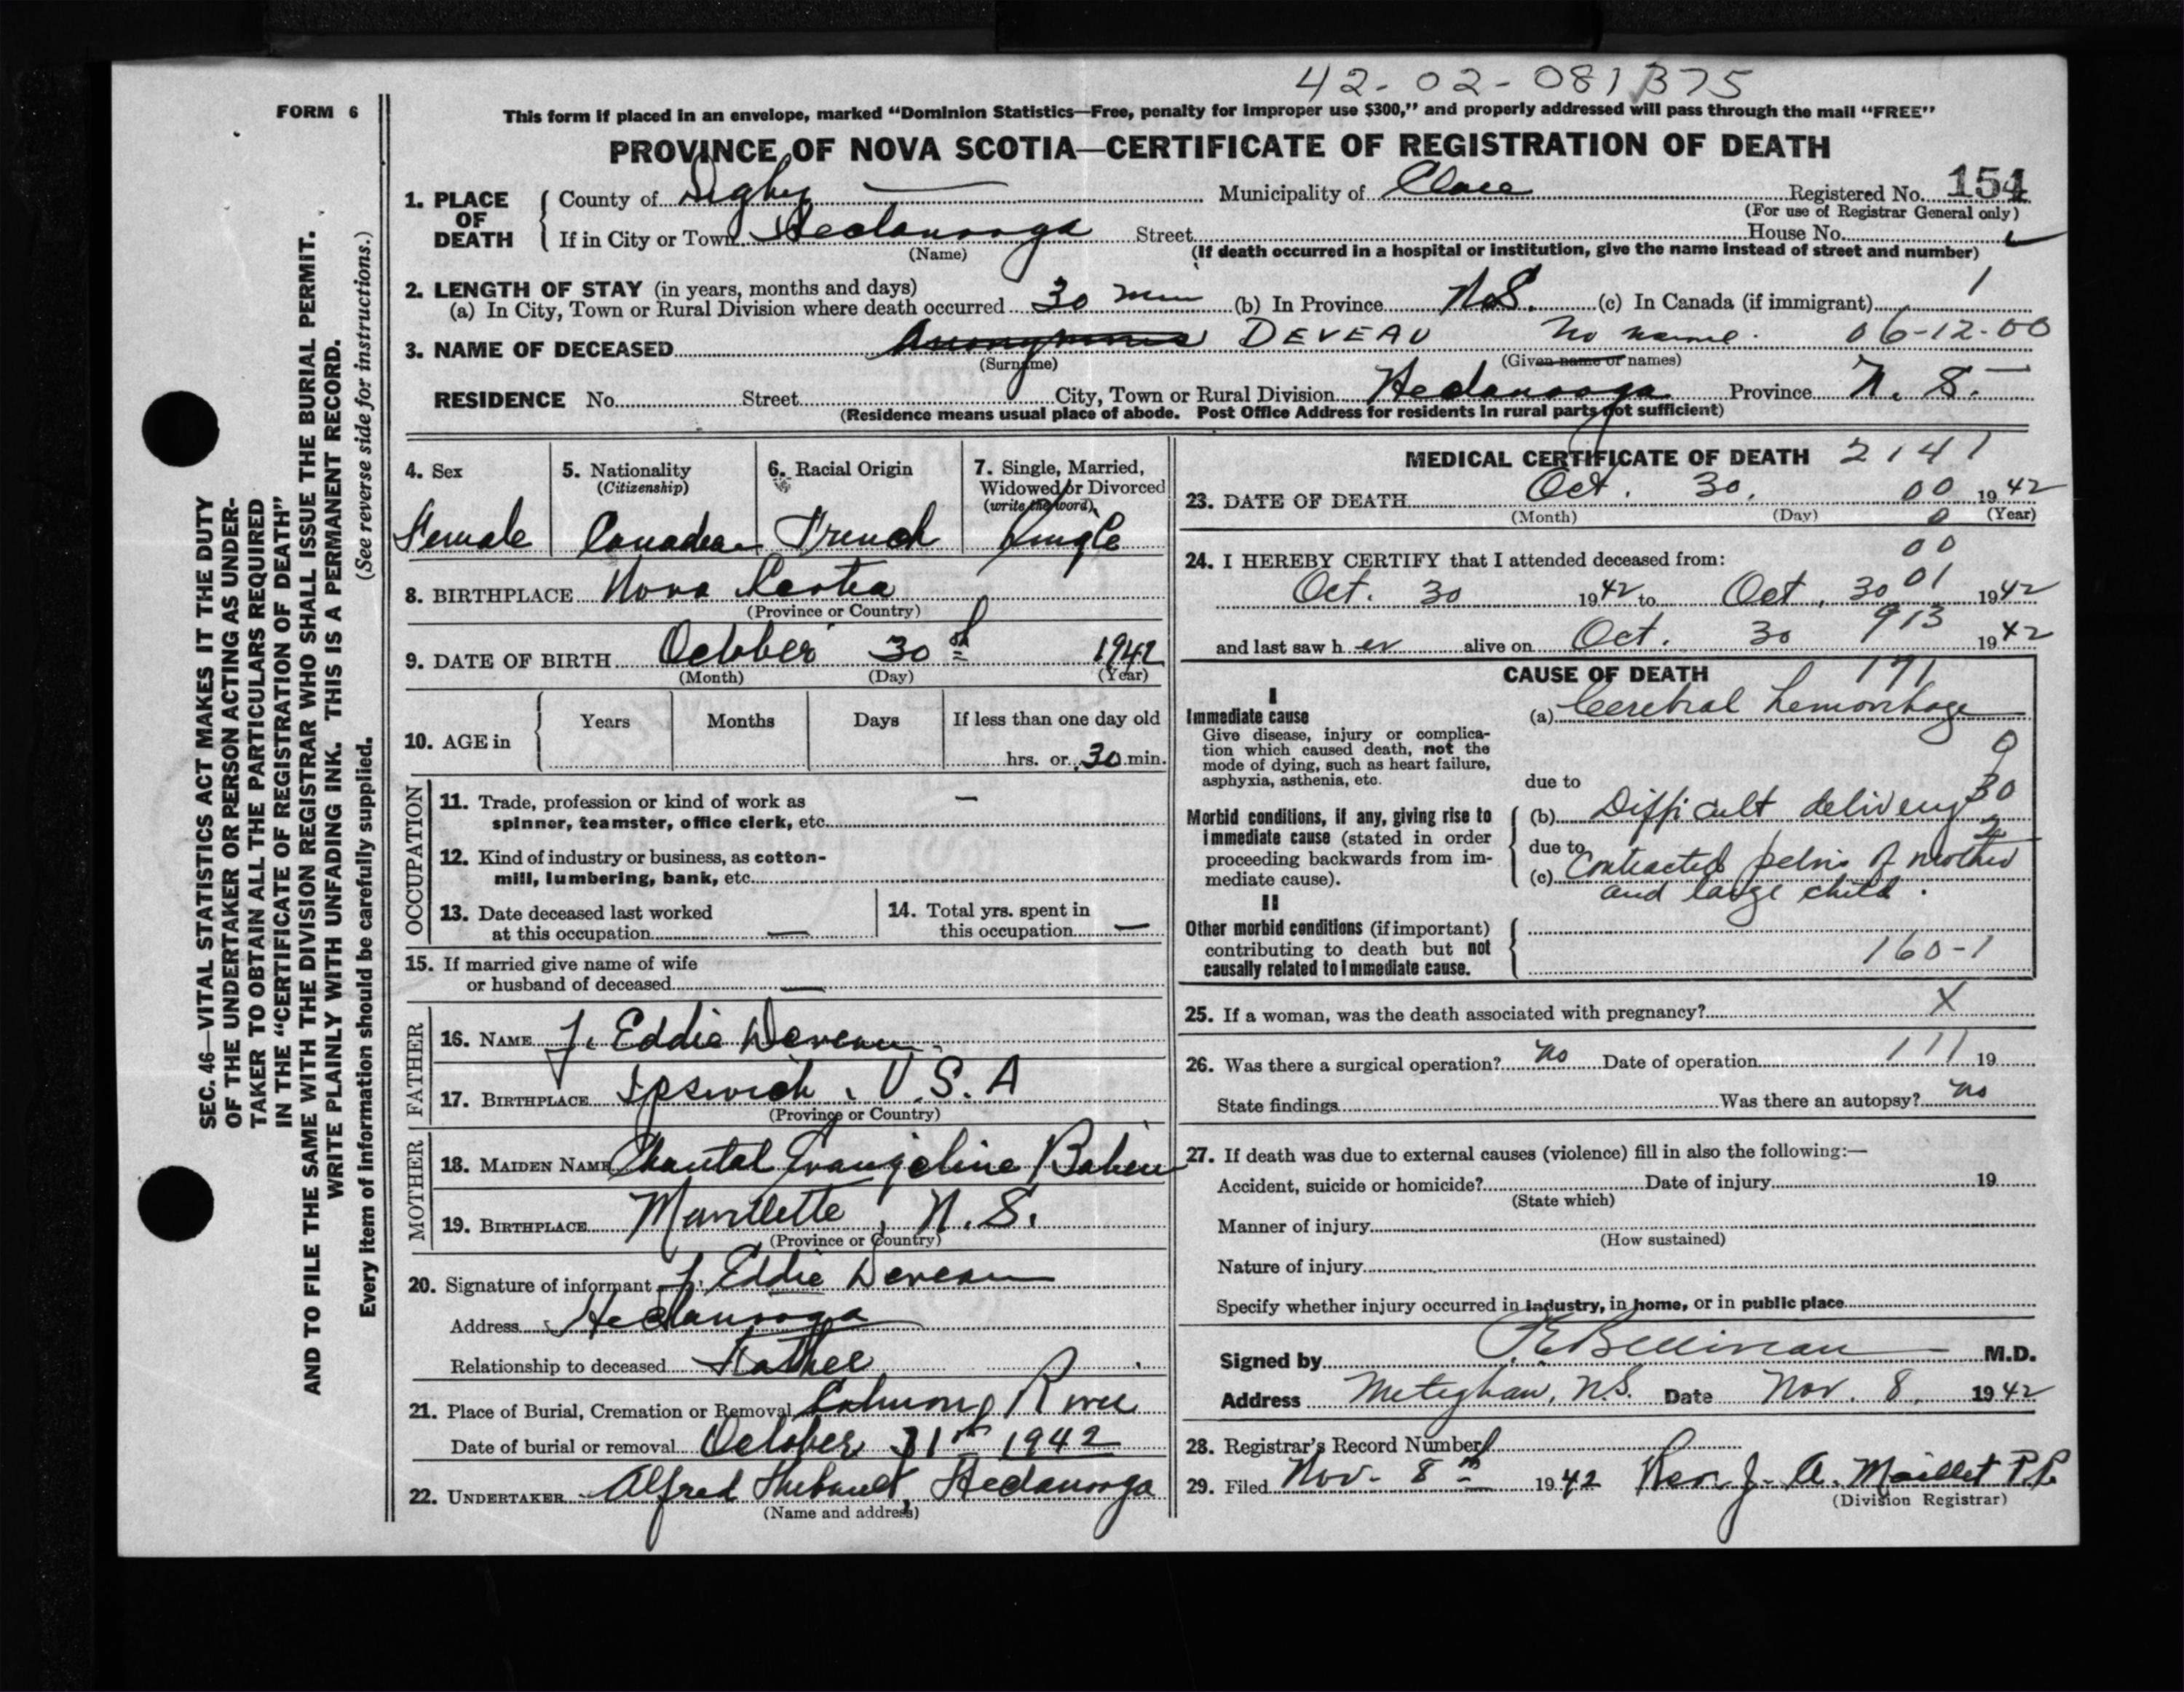 42-02-081375
FORM 6
This form if placed in an envelope, marked "Dominion Statistics—Free, penalty for improper use $300," and properly addressed will pass through the mail "FREE"
PROVINCE OF NOVA SCOTIA—CERTIFICATE OF REGISTRATION OF DEATH
1. PLACE OF DEATH County of Digby Municipality of Clare Registered No. 154
(For use of Registrar General only)
If in City or Town Hectanooga Street House No.
(Name) (If death occurred in a hospital or institution, give the name instead of street and number)
2. LENGTH OF STAY (in years, months and days)
(a) In City, Town or Rural Division where death occurred 30 min (b) In Province N.S. (c) In Canada (if immigrant) 1
3. NAME OF DECEASED Anonymous DEVEAU No name. 06-12-00
(Surname) (Given name or names)
RESIDENCE No. Street City, Town or Rural Division Hectanooga Province N. S.
(Residence means usual place of abode. Post Office Address for residents in rural parts not sufficient)
4. Sex 5. Nationality (Citizenship) 6. Racial Origin 7. Single, Married, Widowed or Divorced (write the word)
Female Canadian French Single
8. BIRTHPLACE Nova Scotia
(Province or Country)
9. DATE OF BIRTH October 30th 1942
(Month) (Day) (Year)
10. AGE in Years Months Days If less than one day old
hrs. or 30 min.
OCCUPATION
11. Trade, profession or kind of work as spinner, teamster, office clerk, etc. —
12. Kind of industry or business, as cotton-mill, lumbering, bank, etc.
13. Date deceased last worked at this occupation — 14. Total yrs. spent in this occupation —
15. If married give name of wife or husband of deceased —
FATHER
16. NAME J. Eddie Deveau
17. BIRTHPLACE Ipswich, U.S.A
(Province or Country)
MOTHER
18. MAIDEN NAME Chantal Evangeline Babin
19. BIRTHPLACE N.S.
(Province or Country)
20. Signature of informant J. Eddie Deveau
Address Hectanooga
Relationship to deceased Father
21. Place of Burial, Cremation or Removal Salmon River
Date of burial or removal October 31th 1942
22. UNDERTAKER Alfred Thibault, Hectanooga
(Name and address)
MEDICAL CERTIFICATE OF DEATH 2141
23. DATE OF DEATH Oct. 30, 00 1942
(Month) (Day) 0 (Year)
00
24. I HEREBY CERTIFY that I attended deceased from:
Oct. 30 1942 to Oct. 30 01 1942
and last saw her alive on Oct. 30 913 1942
CAUSE OF DEATH 171
I
Immediate cause (a) Cerebral hemorrhage
Give disease, injury or complication which caused death, not the mode of dying, such as heart failure, asphyxia, asthenia, etc.
0
due to
30
Morbid conditions, if any, giving rise to immediate cause (stated in order proceeding backwards from immediate cause).
(b) Difficult delivery
2
due to
(c) Contracted pelvis of mother
and large child.
II
Other morbid conditions (if important) contributing to death but not causally related to immediate cause.
160-1
25. If a woman, was the death associated with pregnancy? X
26. Was there a surgical operation? no Date of operation 111 19
State findings Was there an autopsy? no
27. If death was due to external causes (violence) fill in also the following:—
Accident, suicide or homicide? Date of injury 19
(State which)
Manner of injury
(How sustained)
Nature of injury
Specify whether injury occurred in industry, in home, or in public place
Signed by P.E. Belliveau M.D.
Address Meteghan, N.S. Date Nov. 8, 1942
28. Registrar's Record Number
29. Filed Nov. 8th 1942 Rev. J. A. Maillet P.P.
(Division Registrar)
SEC. 46—VITAL STATISTICS ACT MAKES IT THE DUTY
OF THE UNDERTAKER OR PERSON ACTING AS UNDER-
TAKER TO OBTAIN ALL THE PARTICULARS REQUIRED
IN THE "CERTIFICATE OF REGISTRATION OF DEATH"
AND TO FILE THE SAME WITH THE DIVISION REGISTRAR WHO SHALL ISSUE THE BURIAL PERMIT.
WRITE PLAINLY WITH UNFADING INK. THIS IS A PERMANENT RECORD.
Every item of information should be carefully supplied. (See reverse side for instructions.)